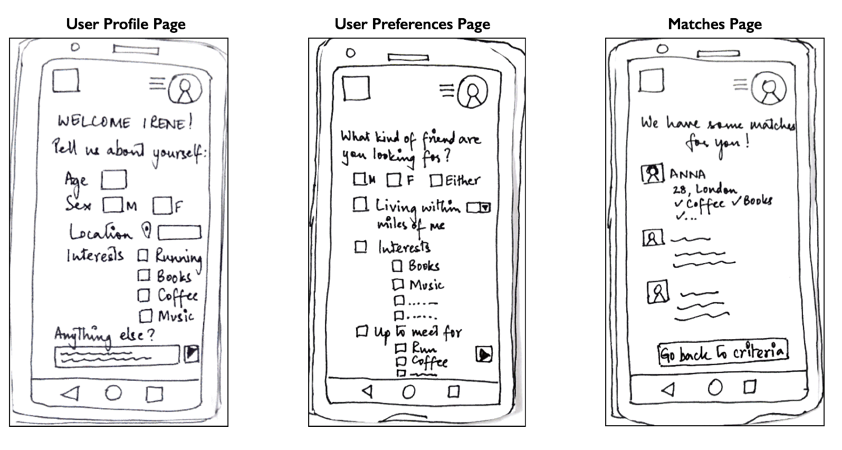 User Profile Page
WELCOME IRENE!
Tell us about yourself:
Age
Sex M F
Location
Interests Running
Books
Coffee
Music
Anything else?
User Preferences Page
What kind of friend are
you looking for?
M F Either
Living within
miles of me
Interests
Books
Music
Up to meet for
Run
Coffee
Matches Page
We have some matches
for you!
ANNA
28, London
✓ Coffee ✓ Books
✓...
Go back to criteria